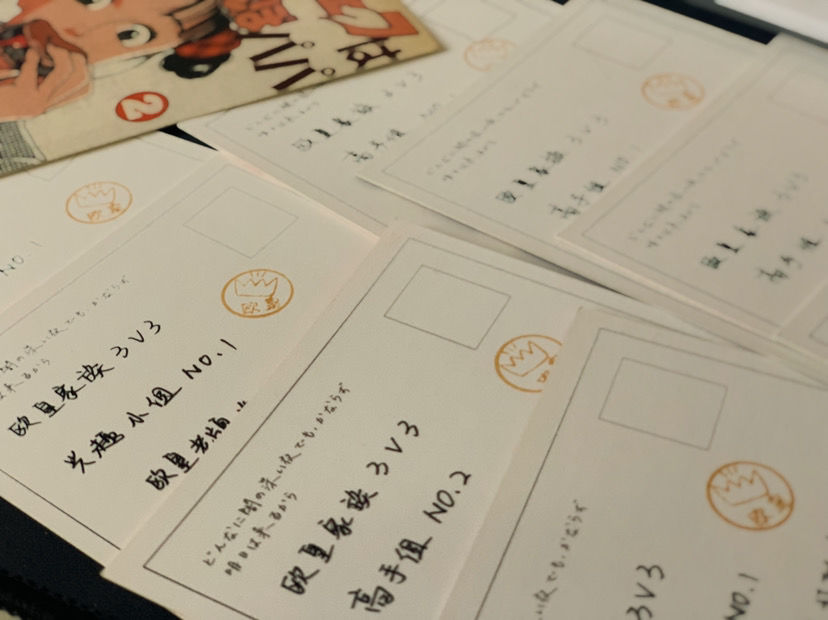 つは
パパ
2
欧皇家族 3V3
高手组 NO.
欧皇家族 3V3
高手组 NO.1
欧皇家族 3V3
高手组
NO.1
欧皇
欧皇
闇の深い夜でも、かならず
は来るから
欧皇家族 3V3
兴趣小组 NO.1
欧皇老版
どんなに闇の深い夜でも、かならず
明日は来るから
欧皇家族 3V3
高手组 NO.2
欧皇
い夜でも、かならず
3V3
NO.1